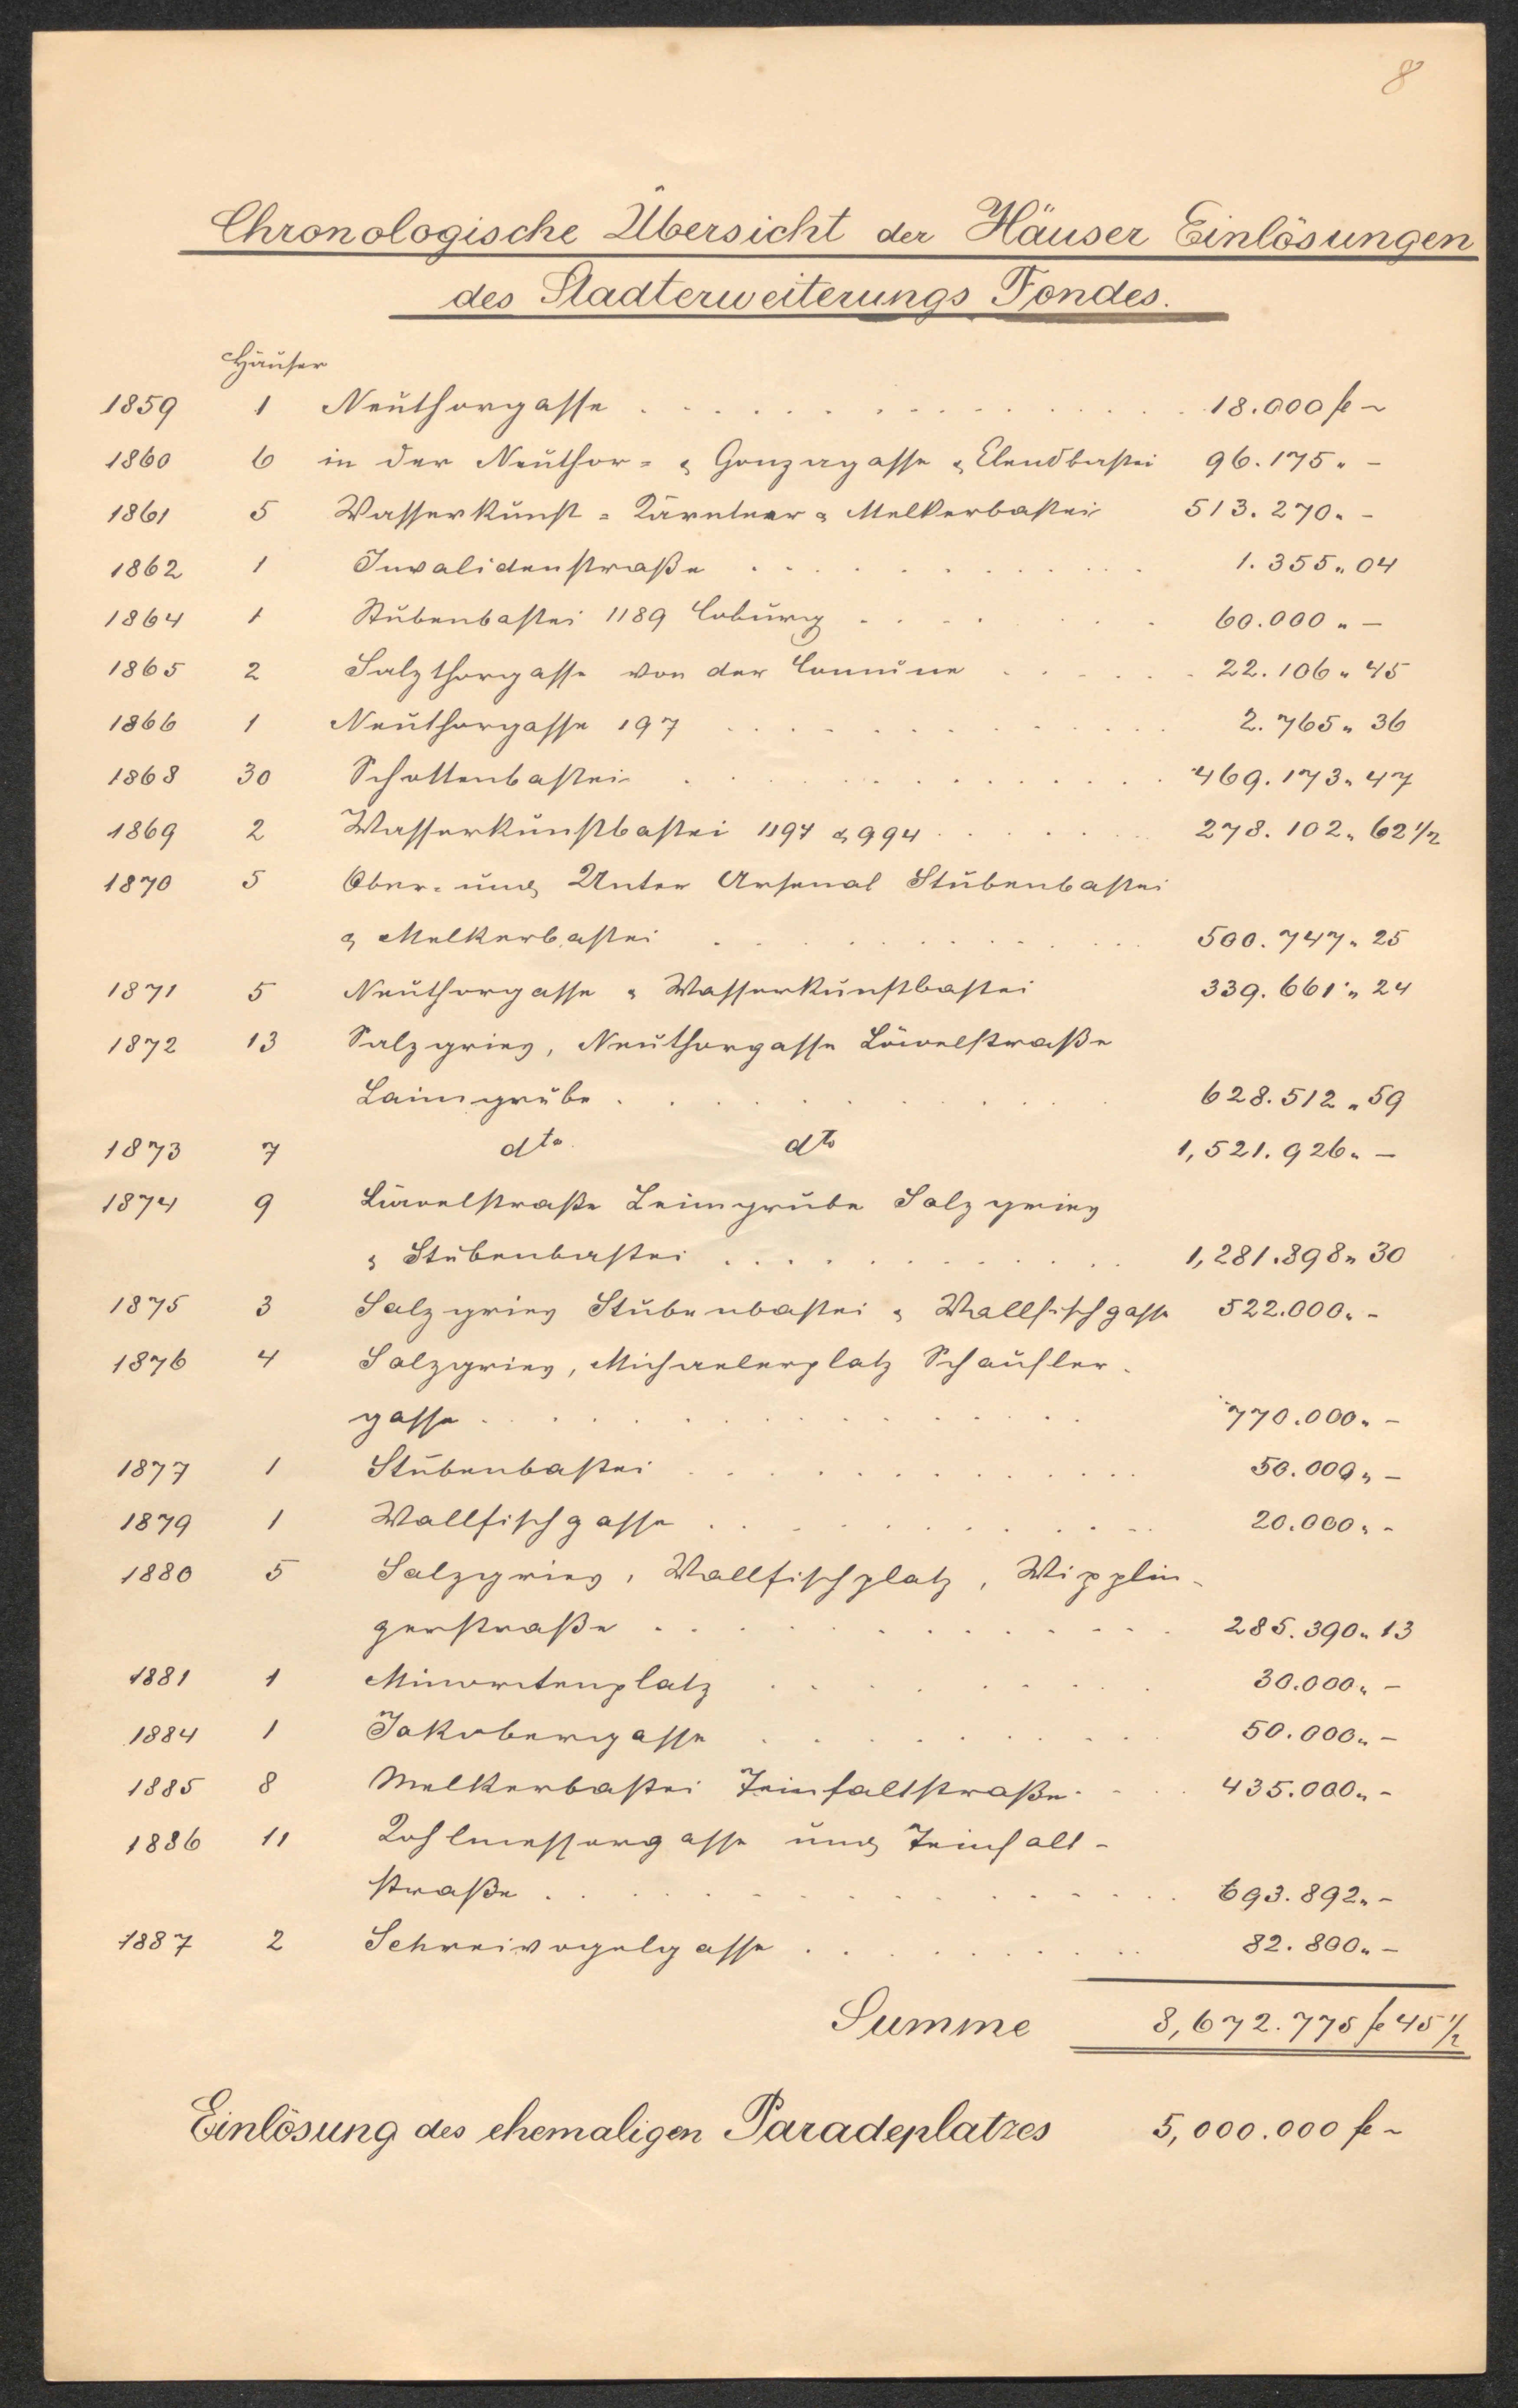 8
Chronologische Übersicht der Häuser Einlösungen
des Stadterweiterungs Fondes.
Häuser
1859 1 Neuthorgasse . . . . . . . . . . 18.000 fl –
1860 6 in der Neuthor= & Gonzagagasse & Elendbastei 96.175 „ –
1861 5 Wasserkunst = Kärntner & Melkerbastei 513.270 „ –
1862 1 Invalidenstraße . . . . . . . . . . 1.355 „ 04
1864 1 Stubenbastei 1189 Coburg . . . . . . . 60.000 „ –
1865 2 Salzthorgasse von der Comune . . . . . 22.106 „ 45
1866 1 Neuthorgasse 197 . . . . . . . . . . 2.765 „ 36
1868 30 Schottenbastei . . . . . . . . . . 469.173 „ 47
1869 2 Wasserkunstbastei 1197 & 994 . . . . . . 278.102 „ 62 1/2
1870 5 Ober- und Unter Arsenal Stubenbastei
& Melkerbastei . . . . . . . . . . 500.747 „ 25
1871 5 Neuthorgasse & Wasserkunstbastei 339.661 „ 24
1872 13 Salzgries, Neuthorgasse Löwelstraße
Laimgrube . . . . . . . . . . 628.512 „ 59
1873 7 dto dto 1,521.926 „ –
1874 9 Löwelstraße Leimgrube Salzgries
& Stubenbastei . . . . . . . . . . 1,281.898 „ 30
1875 3 Salzgries Stubenbastei & Wallfischgasse 522.000 „ –
1876 4 Salzgries, Michaelerplatz Schaufler-
gasse . . . . . . . . . . 770.000 „ –
1877 1 Stubenbastei . . . . . . . . . . 50.000 „ –
1879 1 Wallfischgasse . . . . . . . . . . 20.000 „ –
1880 5 Salzgries, Wallfischplatz, Wipplin-
gerstraße . . . . . . . . . . 285.390 „ 13
1881 1 Minoritenplatz . . . . . . . . . 30.000 „ –
1884 1 Jakobergasse . . . . . . . . . 50.000 „ –
1885 8 Melkerbastei Teinfaltstraße . . . 435.000 „ –
1886 11 Kohlmessergasse und Teinfalt-
straße . . . . . . . . . . 693.892 „ –
1887 2 Schreivogelgasse . . . . . . . . . 82.800 „ –
Summe 8,672.775 fl 45 1/2
Einlösung des ehemaligen Paradeplatzes 5,000.000 fl –